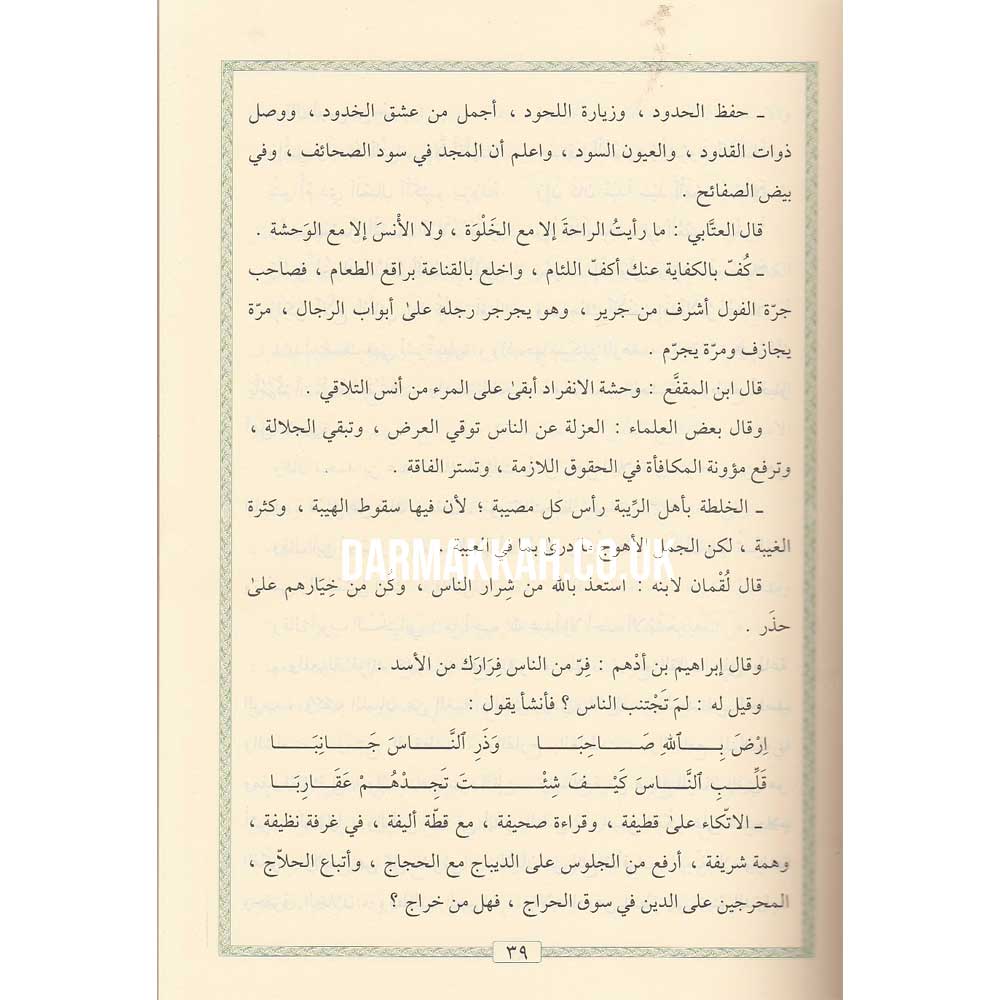 ـ حفظ الحدود ، وزيارة اللحود ، أجمل من عشق الخدود ، ووصل
ذوات القدود ، والعيون السود ، واعلم أن المجد في سود الصحائف ، وفي
بيض الصفائح .
قال العتَّابي : ما رأيتُ الراحةَ إلا مع الخَلْوَة ، ولا الأُنسَ إلا مع الوَحشة .
ـ كُفّ بالكفاية عنك أكفّ اللئام ، واخلع بالقناعة براقع الطعام ، فصاحب
جرّة الفول أشرف من جَرير ، وهو يجرجر رجله على أبواب الرجال ، مرّة
يجازف ومرّة يجرّم .
قال ابن المقفَّع : وحشة الانفراد أبقى على المرء من أنس التلاقي .
وقال بعض العلماء : العزلة عن الناس توقي العرض ، وتبقي الجلالة ،
وترفع مؤونة المكافأة في الحقوق اللازمة ، وتستر الفاقة .
ـ الخلطة بأهل الرِّيبة رأس كل مصيبة ؛ لأن فيها سقوط الهيبة ، وكثرة
الغيبة ، لكن الجمل الأهوج ما درى بما في العيبة .
DARMAKKAH.CO.UK
قال لُقْمان لابنه : استعذ بالله من شِرار الناس ، وكُن من خِيَارهم على
حذَر .
وقال إبراهيم بن أدْهم : فِرّ من الناس فِرَارَك من الأسد .
وقيل له : لمَ تَجْتنب الناس ؟ فأنشأ يقول :
اِرْضَ بِــاللهِ صَــاحِبَــا وَذَرِ النَّــاسَ جَــانِبَــا
قَلِّــبِ النَّــاسَ كَيْــفَ شِئْــتَ تَجِــدْهُــمْ عَقَــارِبَــا
ـ الاتّكاء على قطيفة ، وقراءة صحيفة ، مع قطّة أليفة ، في غرفة نظيفة ،
وهمة شريفة ، أرفع من الجلوس على الديباج مع الحجاج ، وأتباع الحلاّج ،
المحرجين على الدين في سوق الحراج ، فهل من خراج ؟
٣٩